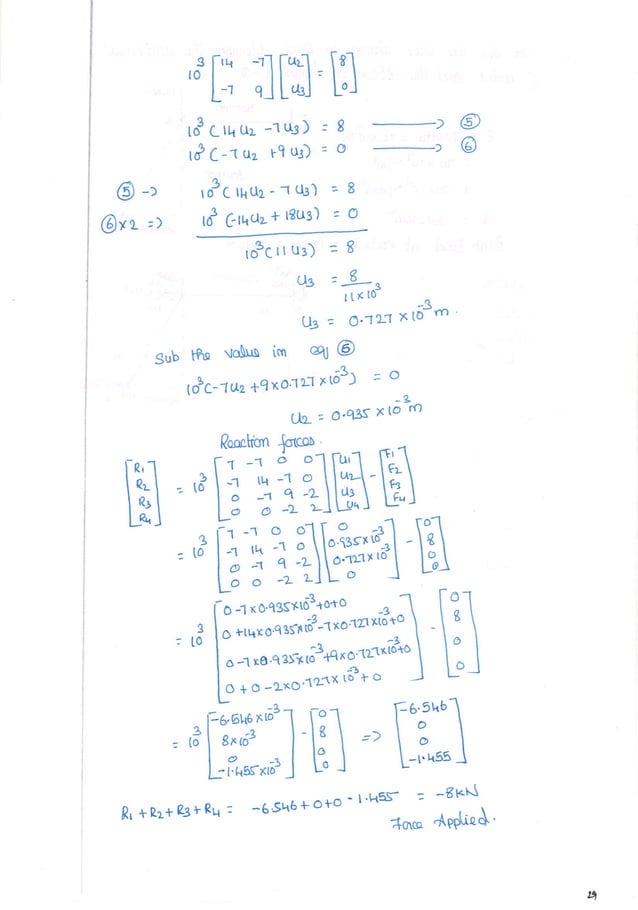 10³ [14 -7; -7 9] [u2; u3] = [8; 0]
10³ (14u2 - 7u3) = 8 → ⑤
10³ (-7u2 + 9u3) = 0 → ⑥
⑤ -> 10³ (14u2 - 7u3) = 8
⑥x2 => 10³ (-14u2 + 18u3) = 0
10³ (11u3) = 8
u3 = 8 / 11x10³
u3 = 0.727 x10⁻³ m.
Sub the value in eq ⑥
10³ (-7u2 + 9x0.727x10⁻³) = 0
u2 = 0.935 x10⁻³ m
Reaction forces.
[R1; R2; R3; R4] = 10³ [7 -7 0 0; -7 14 -7 0; 0 -7 9 -2; 0 0 -2 2] [u1; u2; u3; u4] - [F1; F2; F3; F4]
= 10³ [7 -7 0 0; -7 14 -7 0; 0 -7 9 -2; 0 0 -2 2] [0; 0.935x10⁻³; 0.727x10⁻³; 0] - [0; 8; 0; 0]
= 10³ [0-7x0.935x10⁻³+0+0; 0+14x0.935x10⁻³-7x0.727x10⁻³+0; 0-7x0.935x10⁻³+9x0.727x10⁻³+0; 0+0-2x0.727x10⁻³+0] - [0; 8; 0; 0]
= 10³ [-6.546x10⁻³; 8x10⁻³; 0; -1.455x10⁻³] - [0; 8; 0; 0] => [-6.546; 0; 0; -1.455]
R1 + R2 + R3 + R4 = -6.546 + 0 + 0 - 1.455 = -8kN
Force Applied.
29